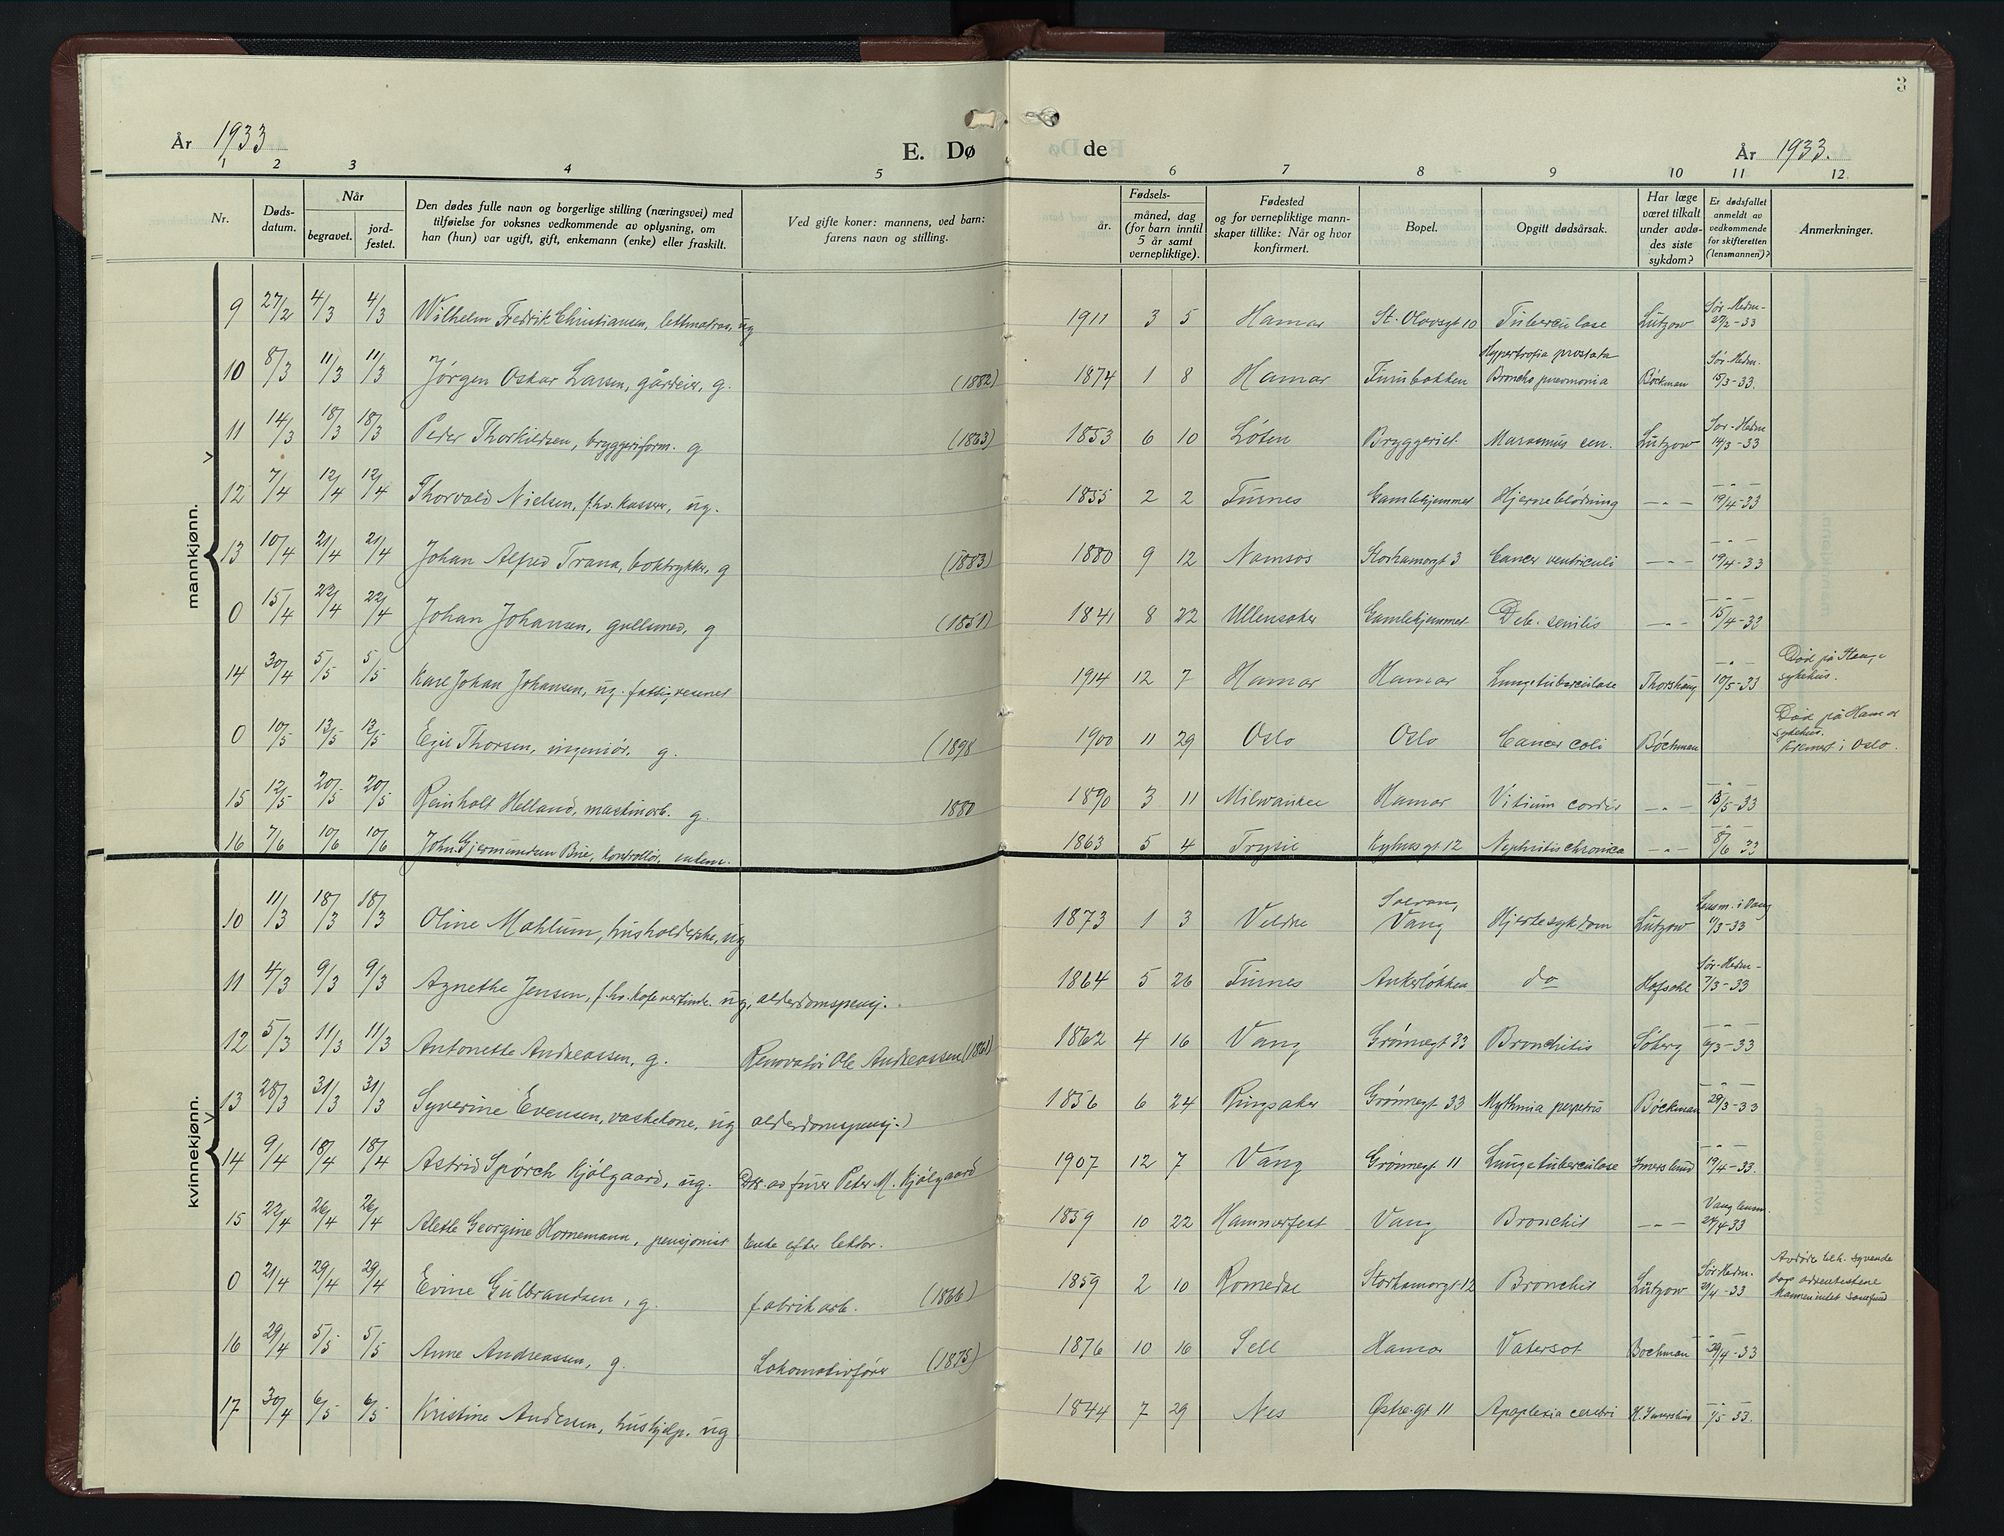 3
År 1933
E. Dø
de
År 1933.
1 2 3 4 5 6 7 8 9 10 11 12.
Nr.
Døds-
datum.
Når
begravet.
jord-
festet.
Den dødes fulle navn og borgerlige stilling (næringsvei) med
tilføielse for voksnes vedkommende av oplysning, om
han (hun) var ugift, gift, enkemann (enke) eller fraskilt.
Ved gifte koner: mannens, ved barn:
farens navn og stilling.
år.
Fødsels-
måned, dag
(for barn inntil
5 år samt
vernepliktige).
Fødested
og for vernepliktige mann-
skaper tillike: Når og hvor
konfirmert.
Bopel.
Opgitt dødsårsak.
Har læge
været tilkalt
under avdø-
des siste
sykdom?
Er dødsfallet
anmeldt av
vedkommende
for skifteretten
(lensmannen)?
Anmerkninger.
mannkjønn.
9 27/2 4/3 4/3 Wilhelm Fredrik Christiansen, lettmatros, ug 1911 3 5 Hamar St. Olavsgt 10 Tuberculose Lützow Sør-Hedm- 27/2-33
10 8/3 11/3 11/3 Jørgen Oskar Larsen, gårdeier, g. (1882) 1874 1 8 Hamar Furubakken Hypertrofia prostata Broncho pneumonia Bøckman Sør-Hedm. 15/3-33.
11 14/3 18/3 18/3 Peder Thorkildsen, bryggeriform. g (1863) 1853 6 10 Løten Bryggeriet Marasmus sen. Lützow Sør-Hedm 14/3-33
12 7/4 12/4 12/4 Thorvald Nielsen, f.hv. kasserer, ug. 1855 2 2 Furnes Gamlehjemmet Hjerneblødning -"- -"- 19/4-33
13 10/4 21/4 21/4 Johan Alfred Trana, boktrykker, g (1883) 1880 9 12 Namsos Storhamargt 3 Cancer ventriculi -"- -"- 19/4-33
0 15/4 22/4 22/4 Johan Johansen, gullsmed, g (1851) 1841 8 22 Ullensaker Gamlehjemmet Deb. senilis -"- -"- 15/4-33
14 30/4 5/5 5/5 Kare Johan Johansen, ug. 1914 12 7 Hamar Hamar Lungetuberculose Thorshaug -"- 10/5-33 Død på Stange sykehus.
0 10/5 13/5 12/5 Egil Thorsen, ingeniør. g. (1898 1900 11 29 Oslo Oslo Cancer coli Bøckman Død på Hamar sykehus. Kremert i Oslo.
15 12/5 20/5 20/5 Reinholt Helland, maskinarb. g. 1880 1890 3 11 Milwaukee Hamar Vitium cordis -"- -"- 15/5-33
16 7/6 10/6 10/6 John Gjermundsen Brie, kontrollør, enkem. 1863 5 4 Trysil 12 Nephritis chronica -"- -"- 8/6 33
kvinnekjønn.
10 11/3 18/3 18/3 Oline Mahlum, husholderske, ug 1873 1 3 Veldre Vang Hjertesykdom Lützow Lensm. i Vang 11/3-33
11 4/3 9/3 9/3 Agnethe Jensen, f.hv. kafevertinde. ug, alderdomspensj. 1864 5 26 Furnes Ankerløkken do Hofsøhl Sør-Hedm- 7/3-33
12 5/3 11/3 11/3 Antonette Andreassen, g. Renovatør Ole Andreassen (1861) 1862 4 16 Vang Grønnegt 33 Bronchitis Søberg -"- 6/3-33
13 28/3 31/3 31/3 Syverine Evensen, vaskekone, ug alderdomspensj.) 1856 6 24 Ringsaker Grønnegt 33 Bøckman -"- 29/3-33
14 9/4 18/4 18/4 Astrid Spørck Kjølgaard, ug. Peter M. Kjølgaard 1907 12 7 Vang Grønnegt 11 Lungetuberculose Imerslund -"- 19/4-33.
15 22/4 26/4 26/4 Alette Georgine Hornemann, pensjonist Enke efter lektor. 1859 10 22 Hammerfest Vang Bronchit -"- Vang lensm. 24/4 33
0 21/4 29/4 29/4 Evine Gulbrandsen, g. fabrikarb. (1866) 1859 2 10 Romedal Storhamargt 12 Bronchit Lützow Sør-Hedm. 21/4-33 Avdøde tilh. syvende dags adventistene Mannen intet samfund
16 29/4 5/5 5/5 Anne Andreassen, g. Lokomotivfører (1875) 1876 10 16 Sell Hamar Vatersot Bøckman -"- 29/4-33
17 30/4 6/5 6/5 Kristine Andersen, hushjelp. ug 1844 7 29 Nes Østregt 11 Apoplexia cerebri H. Imerslund -"- 1/5-33.